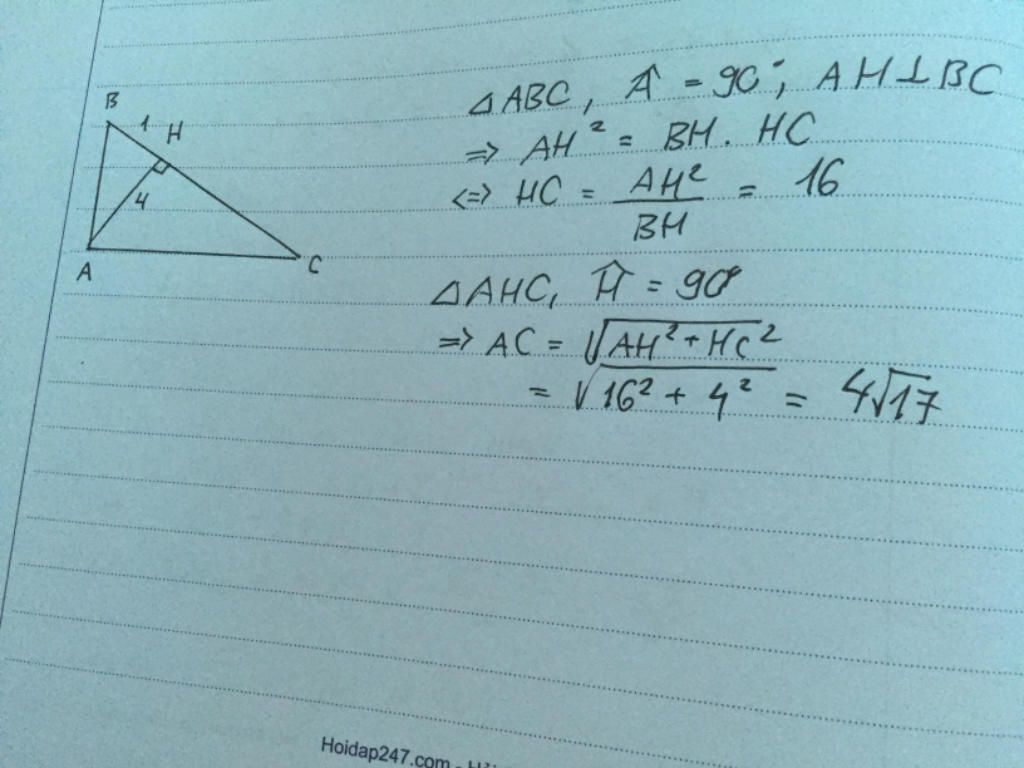 B
1
H
4
A
C
△ABC, Â = 90°; AH⊥BC
=> AH² = BH. HC
<=> HC = AH²/BH = 16
△AHC, Ĥ = 90°
=> AC = √(AH² + HC²)
= √(16² + 4²) = 4√17
Hoidap247.com -